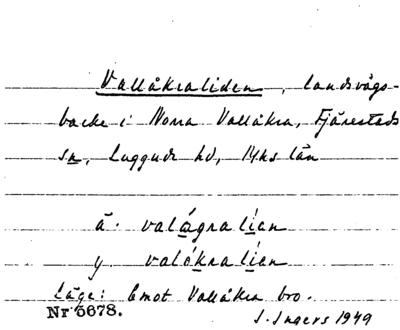 Vallåkraliden, landsvägs-
backe i Norra Vallåkra, Fjärestads
sn, Luggude hd, Mhs län
ä. valágralien
y. valókralíen
Läge: Emot Vallåkra bro.
Nr 5678.
I. Ingers 1949